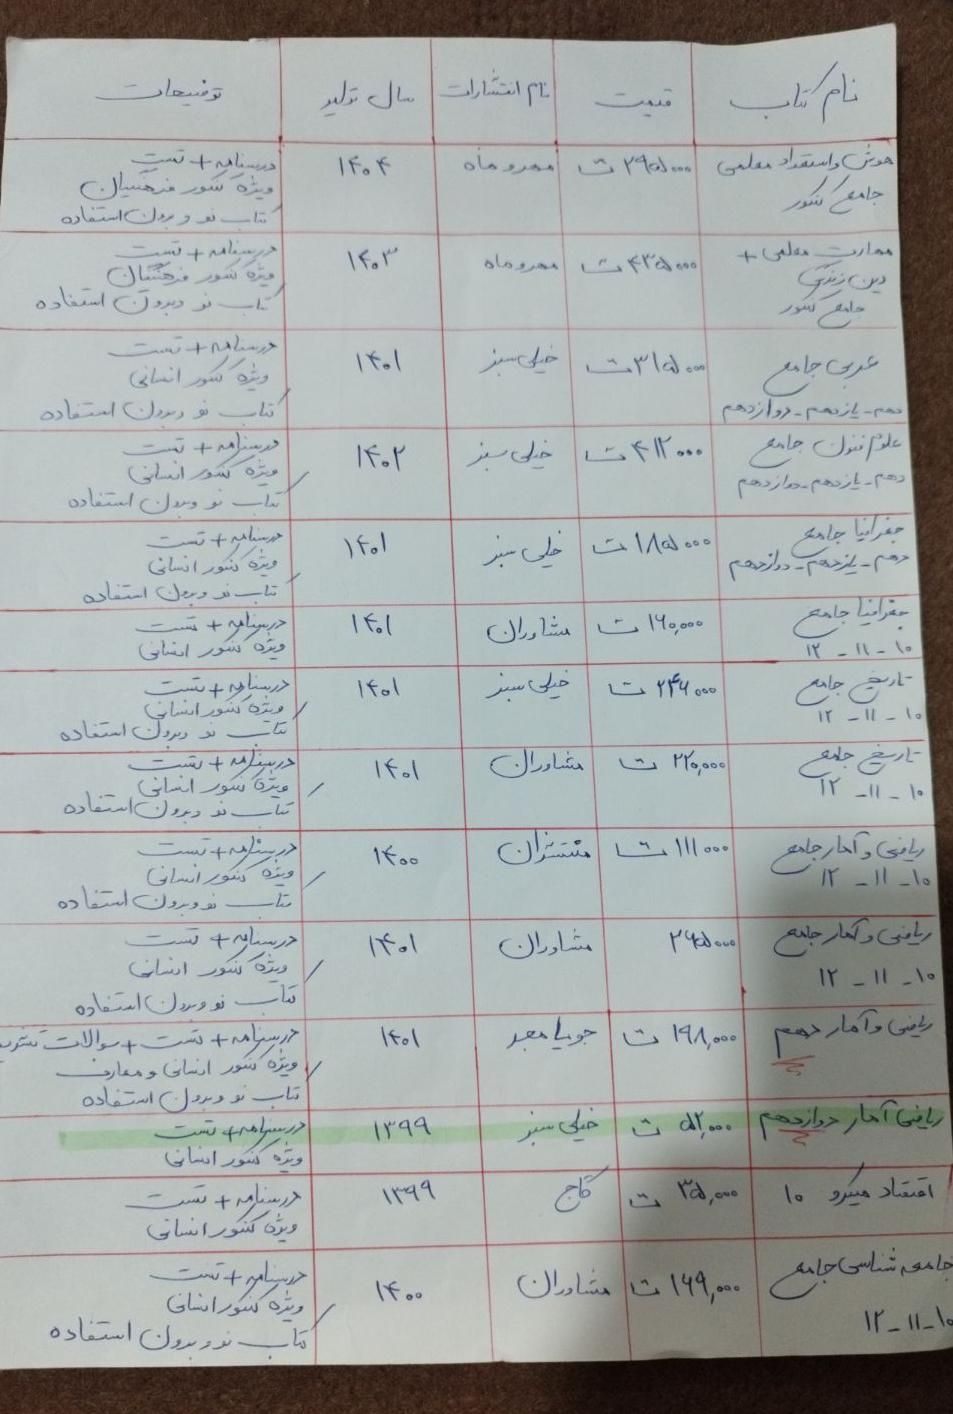 نام کتاب
قیمت
نام انتشارات
سال تولید
توضیحات
هوش و استعداد معلمی
جامع کنکور
۳۹۵۰۰۰ ت
مهروماه
۱۴۰۴
درسنامه + تست
ویژه کنکور فرهنگیان
کتاب نو و بدون استفاده
مهارت معلمی +
دین زندگی
جامع کنکور
۴۳۵۰۰۰ ت
مهروماه
۱۴۰۳
درسنامه + تست
ویژه کنکور فرهنگیان
کتاب نو وبدون استفاده
عربی جامع
دهم - یازدهم - دوازدهم
۳۱۵۰۰۰ ت
خیلی سبز
۱۴۰۱
درسنامه + تست
ویژه کنکور انسانی
کتاب نو وبدون استفاده
علوم فنون جامع
دهم - یازدهم - دوازدهم
۴۱۲۰۰۰ ت
خیلی سبز
۱۴۰۲
درسنامه + تست
ویژه کنکور انسانی
کتاب نو وبدون استفاده
جغرافیا جامع
دهم - یازدهم - دوازدهم
۱۸۵۰۰۰ ت
خیلی سبز
۱۴۰۱
درسنامه + تست
ویژه کنکور انسانی
کتاب نو وبدون استفاده
جغرافیا جامع
۱۰ - ۱۱ - ۱۲
۱۶۰,۰۰۰ ت
مشاوران
۱۴۰۱
درسنامه + تست
ویژه کنکور انسانی
تاریخ جامع
۱۰ - ۱۱ - ۱۲
۲۴۶۰۰۰ ت
خیلی سبز
۱۴۰۱
درسنامه + تست
ویژه کنکور انسانی
کتاب نو وبدون استفاده
تاریخ جامع
۱۰ - ۱۱ - ۱۲
۲۲۰,۰۰۰ ت
مشاوران
۱۴۰۱
درسنامه + تست
ویژه کنکور انسانی
کتاب نو وبدون استفاده
ریاضی و آمار جامع
۱۰ - ۱۱ - ۱۲
۱۱۱۰۰۰ ت
منتشران
۱۴۰۰
درسنامه + تست
ویژه کنکور انسانی
کتاب نو وبدون استفاده
ریاضی و آمار جامع
۱۰ - ۱۱ - ۱۲
۲۶۵۰۰۰
مشاوران
۱۴۰۱
درسنامه + تست
ویژه کنکور انسانی
کتاب نو وبدون استفاده
ریاضی و آمار دهم
۱۹۸,۰۰۰ ت
جویا مجد
۱۴۰۱
درسنامه + تست + سوالات
ویژه کنکور انسانی و معارف
کتاب نو وبدون استفاده
ریاضی آمار دوازدهم
۵۲,۰۰۰ ت
خیلی سبز
۱۳۹۹
درسنامه + تست
ویژه کنکور انسانی
اقتصاد میکرو ۱۰
۳۵,۰۰۰ ت
گاج
۱۳۹۹
درسنامه + تست
ویژه کنکور انسانی
جامعه شناسی جامع
۱۰ - ۱۱ - ۱۲
۱۶۹,۰۰۰ ت
مشاوران
۱۴۰۰
درسنامه + تست
ویژه کنکور انسانی
کتاب نو وبدون استفاده